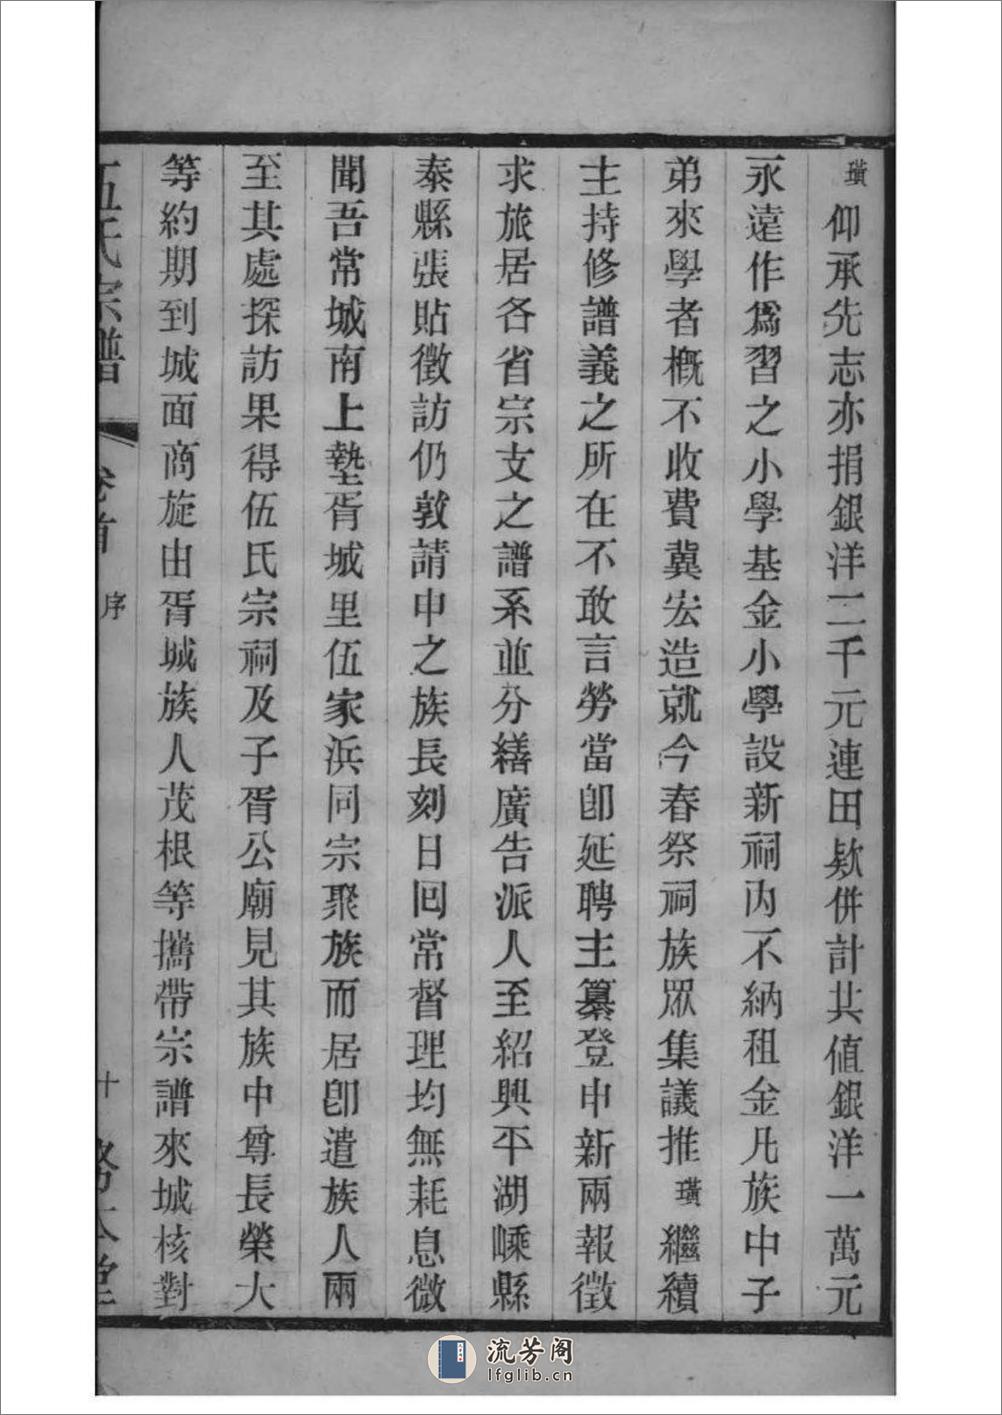 璜仰承先志亦捐銀洋二千元連田欵併計共値銀洋一萬元
永遠作爲習之小學基金小學設新祠內不納租金凡族中子
弟來學者概不收費冀宏造就今春祭祠族眾集議推璜繼續
主持修譜義之所在不敢言勞當卽延聘主纂登申新兩報徵
求旅居各省宗支之譜系並分繕廣告派人至紹興平湖嵊縣
泰縣張貼徵訪仍敦請申之族長刻日回常督理均無耗息微
聞吾常城南上塾胥城里伍家浜同宗聚族而居卽遣族人兩
至其處探訪果得伍氏宗祠及子胥公廟見其族中尊長榮大
等約期到城面商旋由胥城族人茂根等攜帶宗譜來城核對
伍氏宗譜 卷首 序 十
流芳阁
lfglib.cn